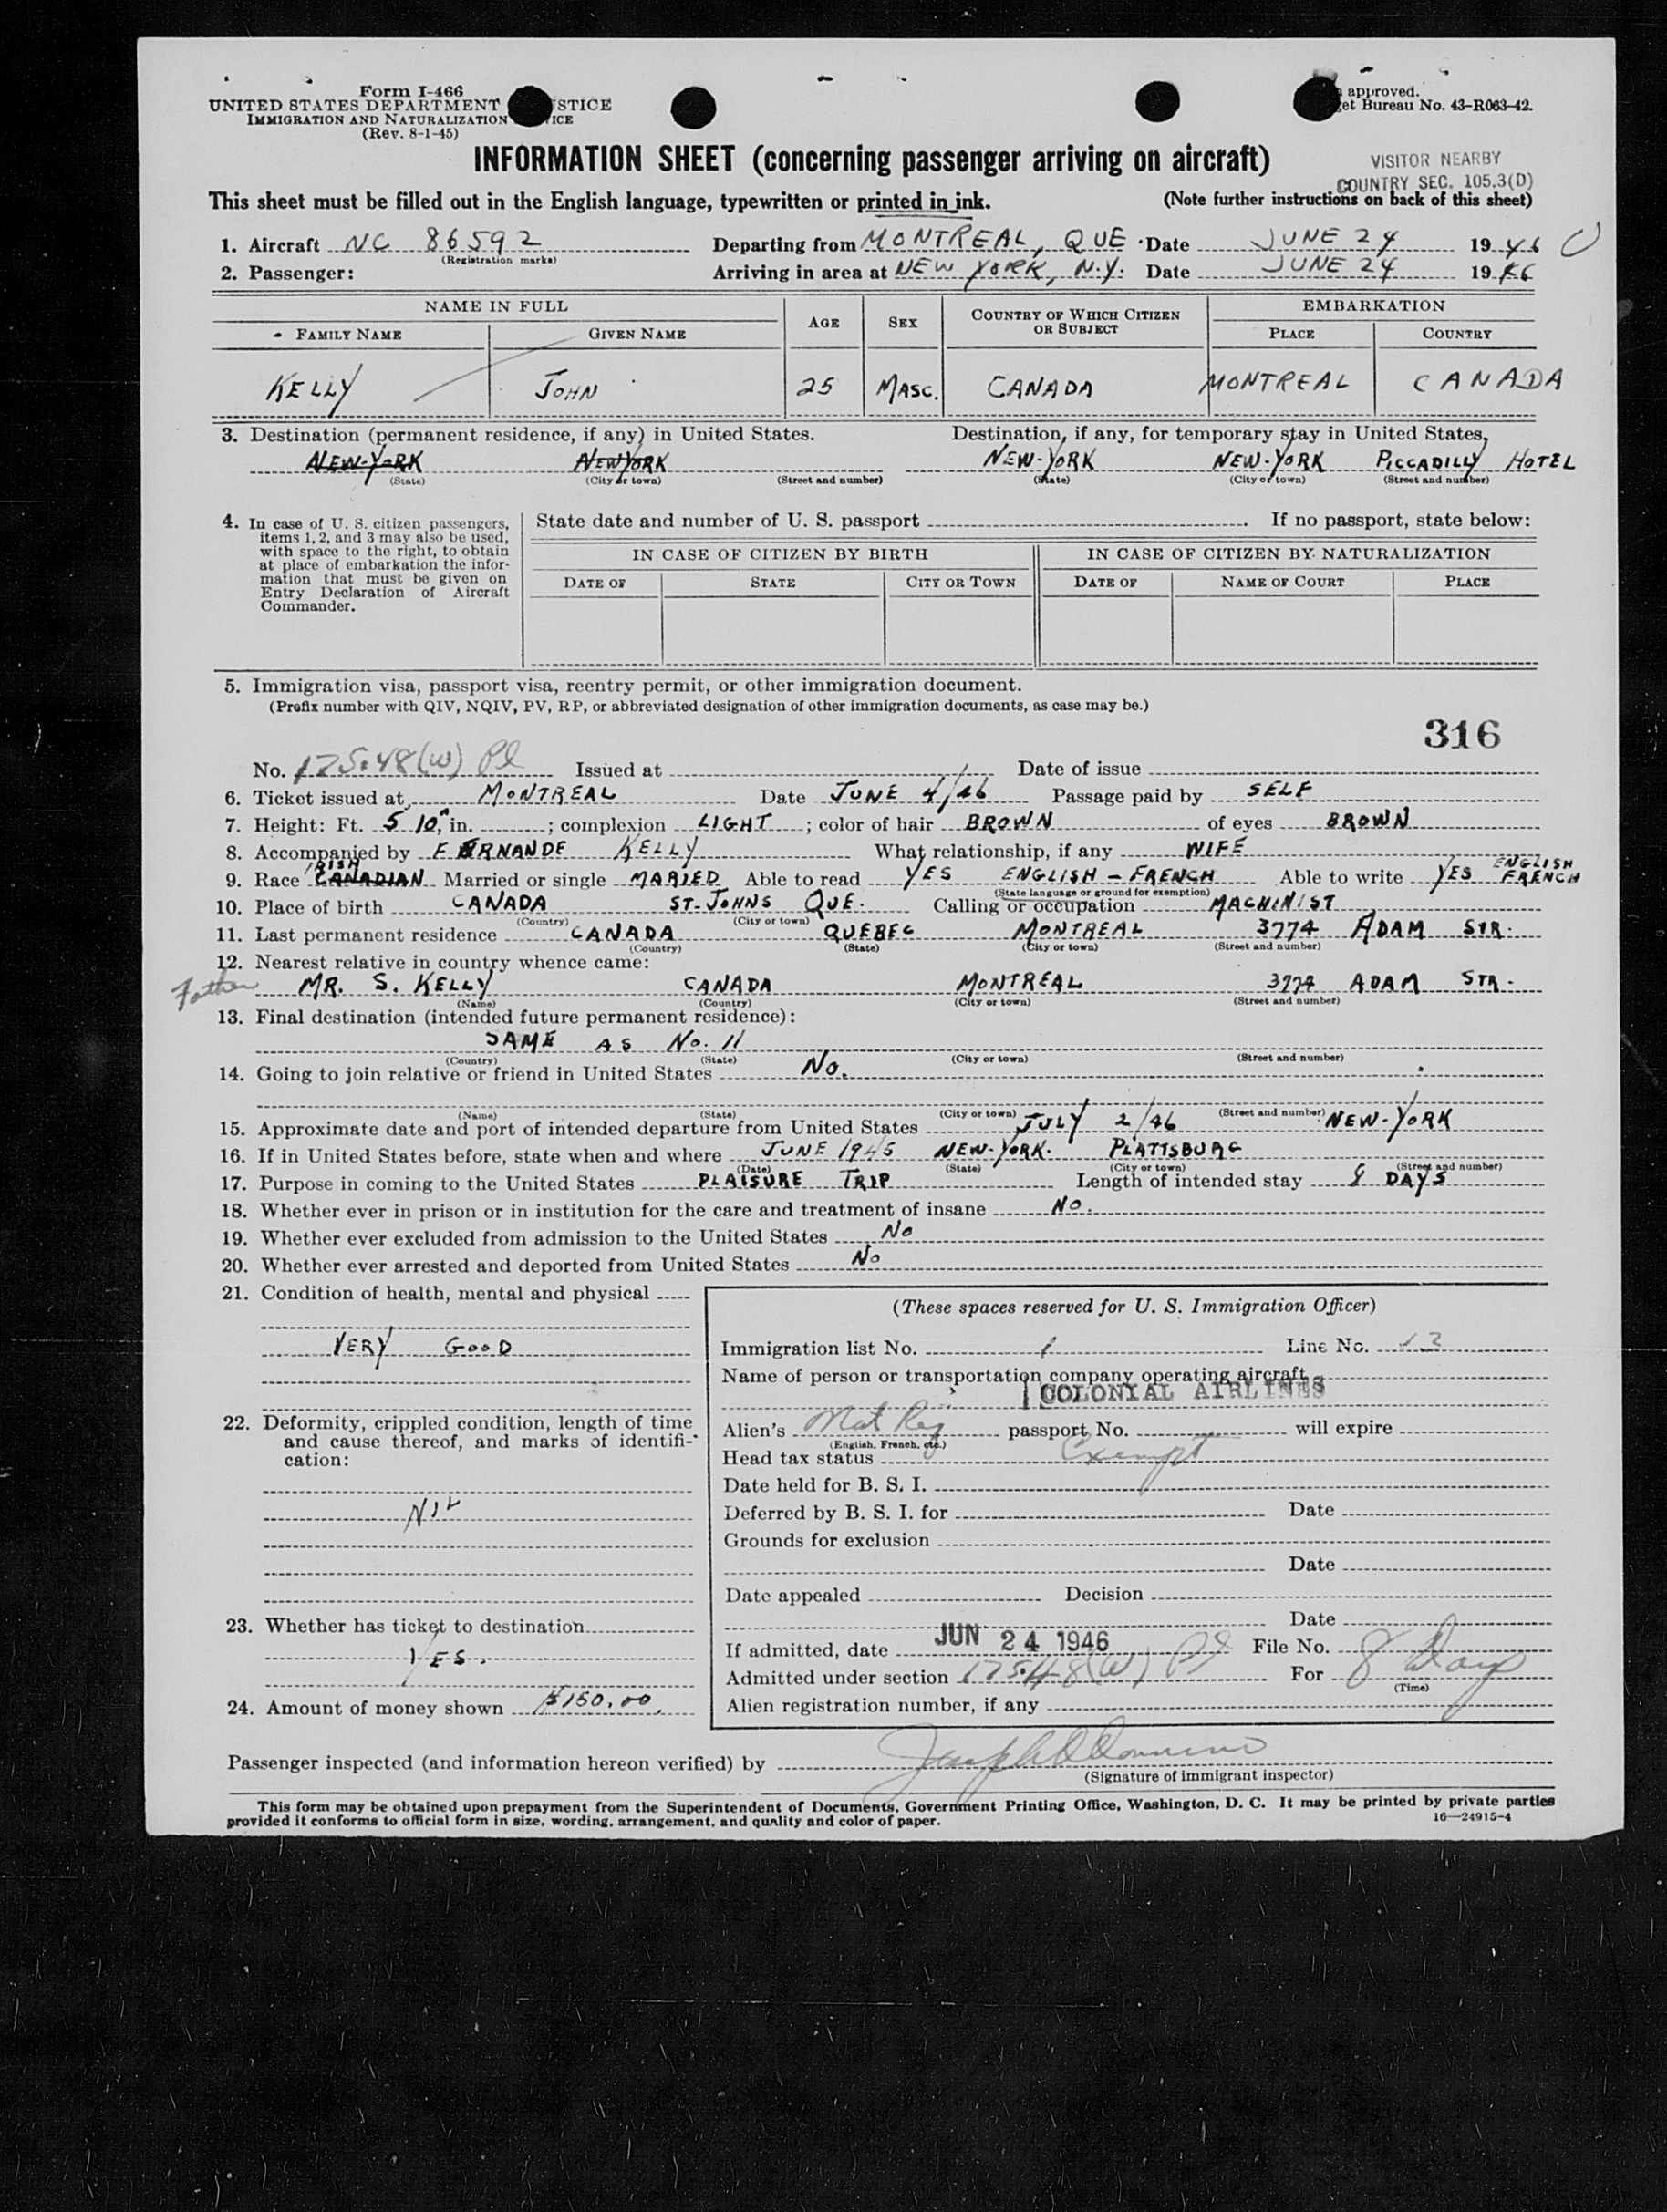 Form I-466
UNITED STATES DEPARTMENT STICE
IMMIGRATION AND NATURALIZATION ICE
(Rev. 8-1-45)
approved.
et Bureau No. 43-R063-42.
INFORMATION SHEET (concerning passenger arriving on aircraft)
VISITOR NEARBY
COUNTRY SEC. 105.3(D)
This sheet must be filled out in the English language, typewritten or printed in ink. (Note further instructions on back of this sheet)
1. Aircraft NC 86592 Departing from MONTREAL, QUE Date JUNE 24 1946
(Registration marks)
2. Passenger: Arriving in area at NEW YORK, N.Y. Date JUNE 24 1946
NAME IN FULL AGE SEX COUNTRY OF WHICH CITIZEN OR SUBJECT EMBARKATION
FAMILY NAME GIVEN NAME PLACE COUNTRY
KELLY JOHN 25 MASC. CANADA MONTREAL CANADA
3. Destination (permanent residence, if any) in United States. Destination, if any, for temporary stay in United States,
NEW-YORK NEWYORK NEW-YORK NEW-YORK PICCADILLY HOTEL
(State) (City or town) (Street and number) (State) (City or town) (Street and number)
4. In case of U. S. citizen passengers,
items 1, 2, and 3 may also be used,
with space to the right, to obtain
at place of embarkation the infor-
mation that must be given on
Entry Declaration of Aircraft
Commander.
State date and number of U. S. passport If no passport, state below:
IN CASE OF CITIZEN BY BIRTH IN CASE OF CITIZEN BY NATURALIZATION
DATE OF STATE CITY OR TOWN DATE OF NAME OF COURT PLACE
5. Immigration visa, passport visa, reentry permit, or other immigration document.
(Prefix number with QIV, NQIV, PV, RP, or abbreviated designation of other immigration documents, as case may be.)
316
No. 175.48(W) Pl Issued at Date of issue
6. Ticket issued at MONTREAL Date JUNE 4/46 Passage paid by SELF
7. Height: Ft. 5 10, in. ; complexion LIGHT ; color of hair BROWN of eyes BROWN
8. Accompanied by FERNANDE KELLY What relationship, if any WIFE
9. Race CANADIAN IRISH Married or single MARIED Able to read YES ENGLISH - FRENCH Able to write YES ENGLISH FRENCH
(State language or ground for exemption)
10. Place of birth CANADA ST-JOHNS QUE. Calling or occupation MACHINIST
(Country) (City or town)
11. Last permanent residence CANADA QUEBEC MONTREAL 3774 ADAM STR.
(Country) (State) (City or town) (Street and number)
12. Nearest relative in country whence came:
Father MR. S. KELLY CANADA MONTREAL 3774 ADAM STR.
(Name) (Country) (City or town) (Street and number)
13. Final destination (intended future permanent residence):
SAME AS No. 11
(Country) (State) (City or town) (Street and number)
14. Going to join relative or friend in United States No.
(Name) (State) (City or town) (Street and number)
15. Approximate date and port of intended departure from United States JULY 2/46 NEW-YORK
16. If in United States before, state when and where JUNE 1945 NEW-YORK. PLATTSBURG
(Date) (State) (City or town) (Street and number)
17. Purpose in coming to the United States PLAISURE TRIP Length of intended stay 8 DAYS
18. Whether ever in prison or in institution for the care and treatment of insane NO.
19. Whether ever excluded from admission to the United States No
20. Whether ever arrested and deported from United States No
21. Condition of health, mental and physical
VERY GOOD
22. Deformity, crippled condition, length of time
and cause thereof, and marks of identifi-
cation:
NIL
23. Whether has ticket to destination
YES.
24. Amount of money shown $150.00
(These spaces reserved for U. S. Immigration Officer)
Immigration list No. 1 Line No. 13
Name of person or transportation company operating aircraft
COLONIAL AIRLINES
Alien's Nat Reg passport No. will expire
(English, French, etc.)
Head tax status Exempt
Date held for B. S. I.
Deferred by B. S. I. for Date
Grounds for exclusion
Date
Date appealed Decision
Date
If admitted, date JUN 24 1946 File No.
Admitted under section 175.48(W) Pl For 8 Days
(Time)
Alien registration number, if any
Passenger inspected (and information hereon verified) by
(Signature of immigrant inspector)
This form may be obtained upon prepayment from the Superintendent of Documents, Government Printing Office, Washington, D. C. It may be printed by private parties
provided it conforms to official form in size, wording, arrangement, and quality and color of paper. 16—24915-4